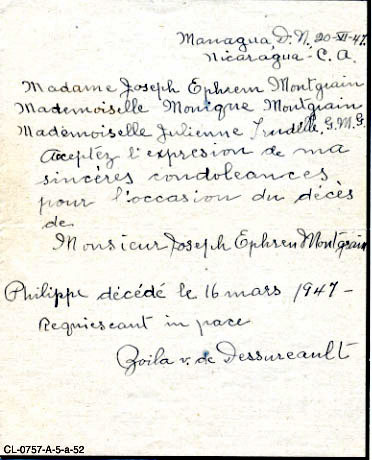 Managua, D. N., 20-XI-47.
Nicaragua - C. A.
Madame Joseph Ephrem Montgrain
Mademoiselle Monique Montgrain
Mademoiselle Julienne Trudelle, G.M.G.
Acceptez l'expresion de ma
sincères condoleances
pour l'occasion du décès
de
Monsieur Joseph Ephren Montgrain
Philippe décédé le 16 mars 1947 -
Requiescant in pace
Zoila v. de Dessureault
CL-0757-A-5-a-52